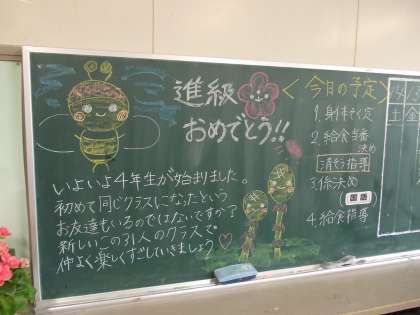 進級
おめでとう!!
いよいよ4年生が始まりました。
初めて同じクラスになったという
お友達もいるのではないですか?
新しいこの31人のクラスで
仲よく楽しくすごしていきましょう♡
<今日の予定>
1.身体そく定
2.給食当番
決め
清そう指導
3.係決め
国語
4.給食指導
土 金